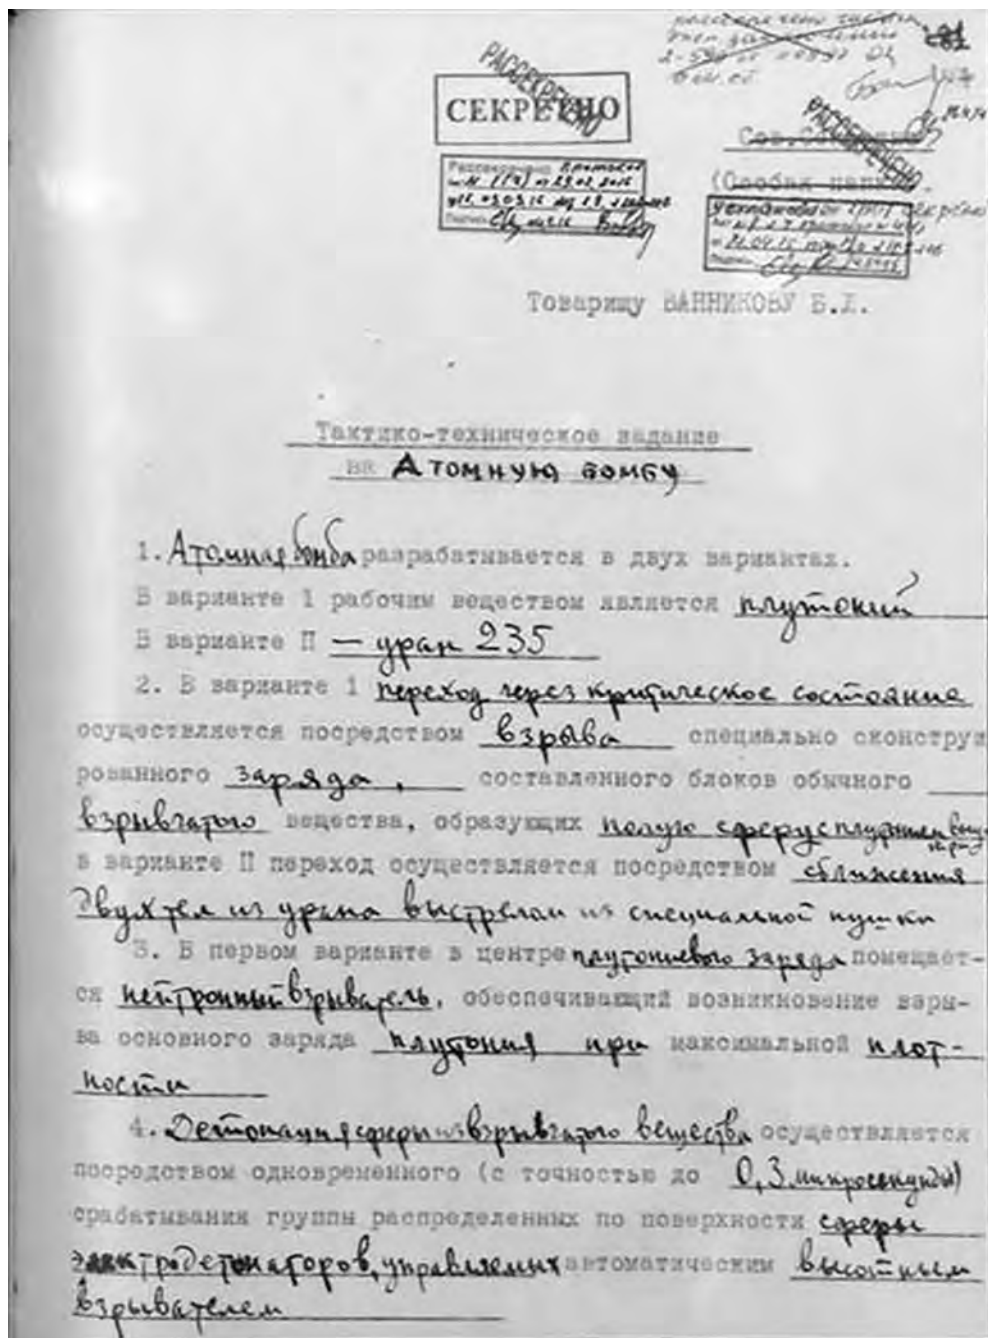 РАССЕКРЕЧЕНО
СЕКРЕТНО
РАССЕКРЕЧЕНО
Сов.Секретно
(Особая папка)
Рассекречено
Товарищу ВАННИКОВУ Б.Л.
Тактико-техническое задание
на Атомную бомбу
1. Атомная бомба разрабатывается в двух вариантах.
В варианте 1 рабочим веществом является плутоний
В варианте П — уран 235
2. В варианте 1 переход через критическое состояние
осуществляется посредством взрыва специально сконструи
рованного заряда, составленного блоков обычного
взрывчатого вещества, образующих полую сферу с плутонием
в варианте П переход осуществляется посредством сближения
двух тел из урана выстрелом из специальной пушки
3. В первом варианте в центре плутониевого заряда помещает-
ся нейтронный взрыватель, обеспечивающий возникновение взры-
ва основного заряда плутония при максимальной плот-
ности
4. Детонация сферы из взрывчатого вещества осуществляется
посредством одновременного (с точностью до 0,3 микросекунды)
срабатывания группы распределенных по поверхности сферы
электродетонаторов, управляемых автоматическим высотным
взрывателем